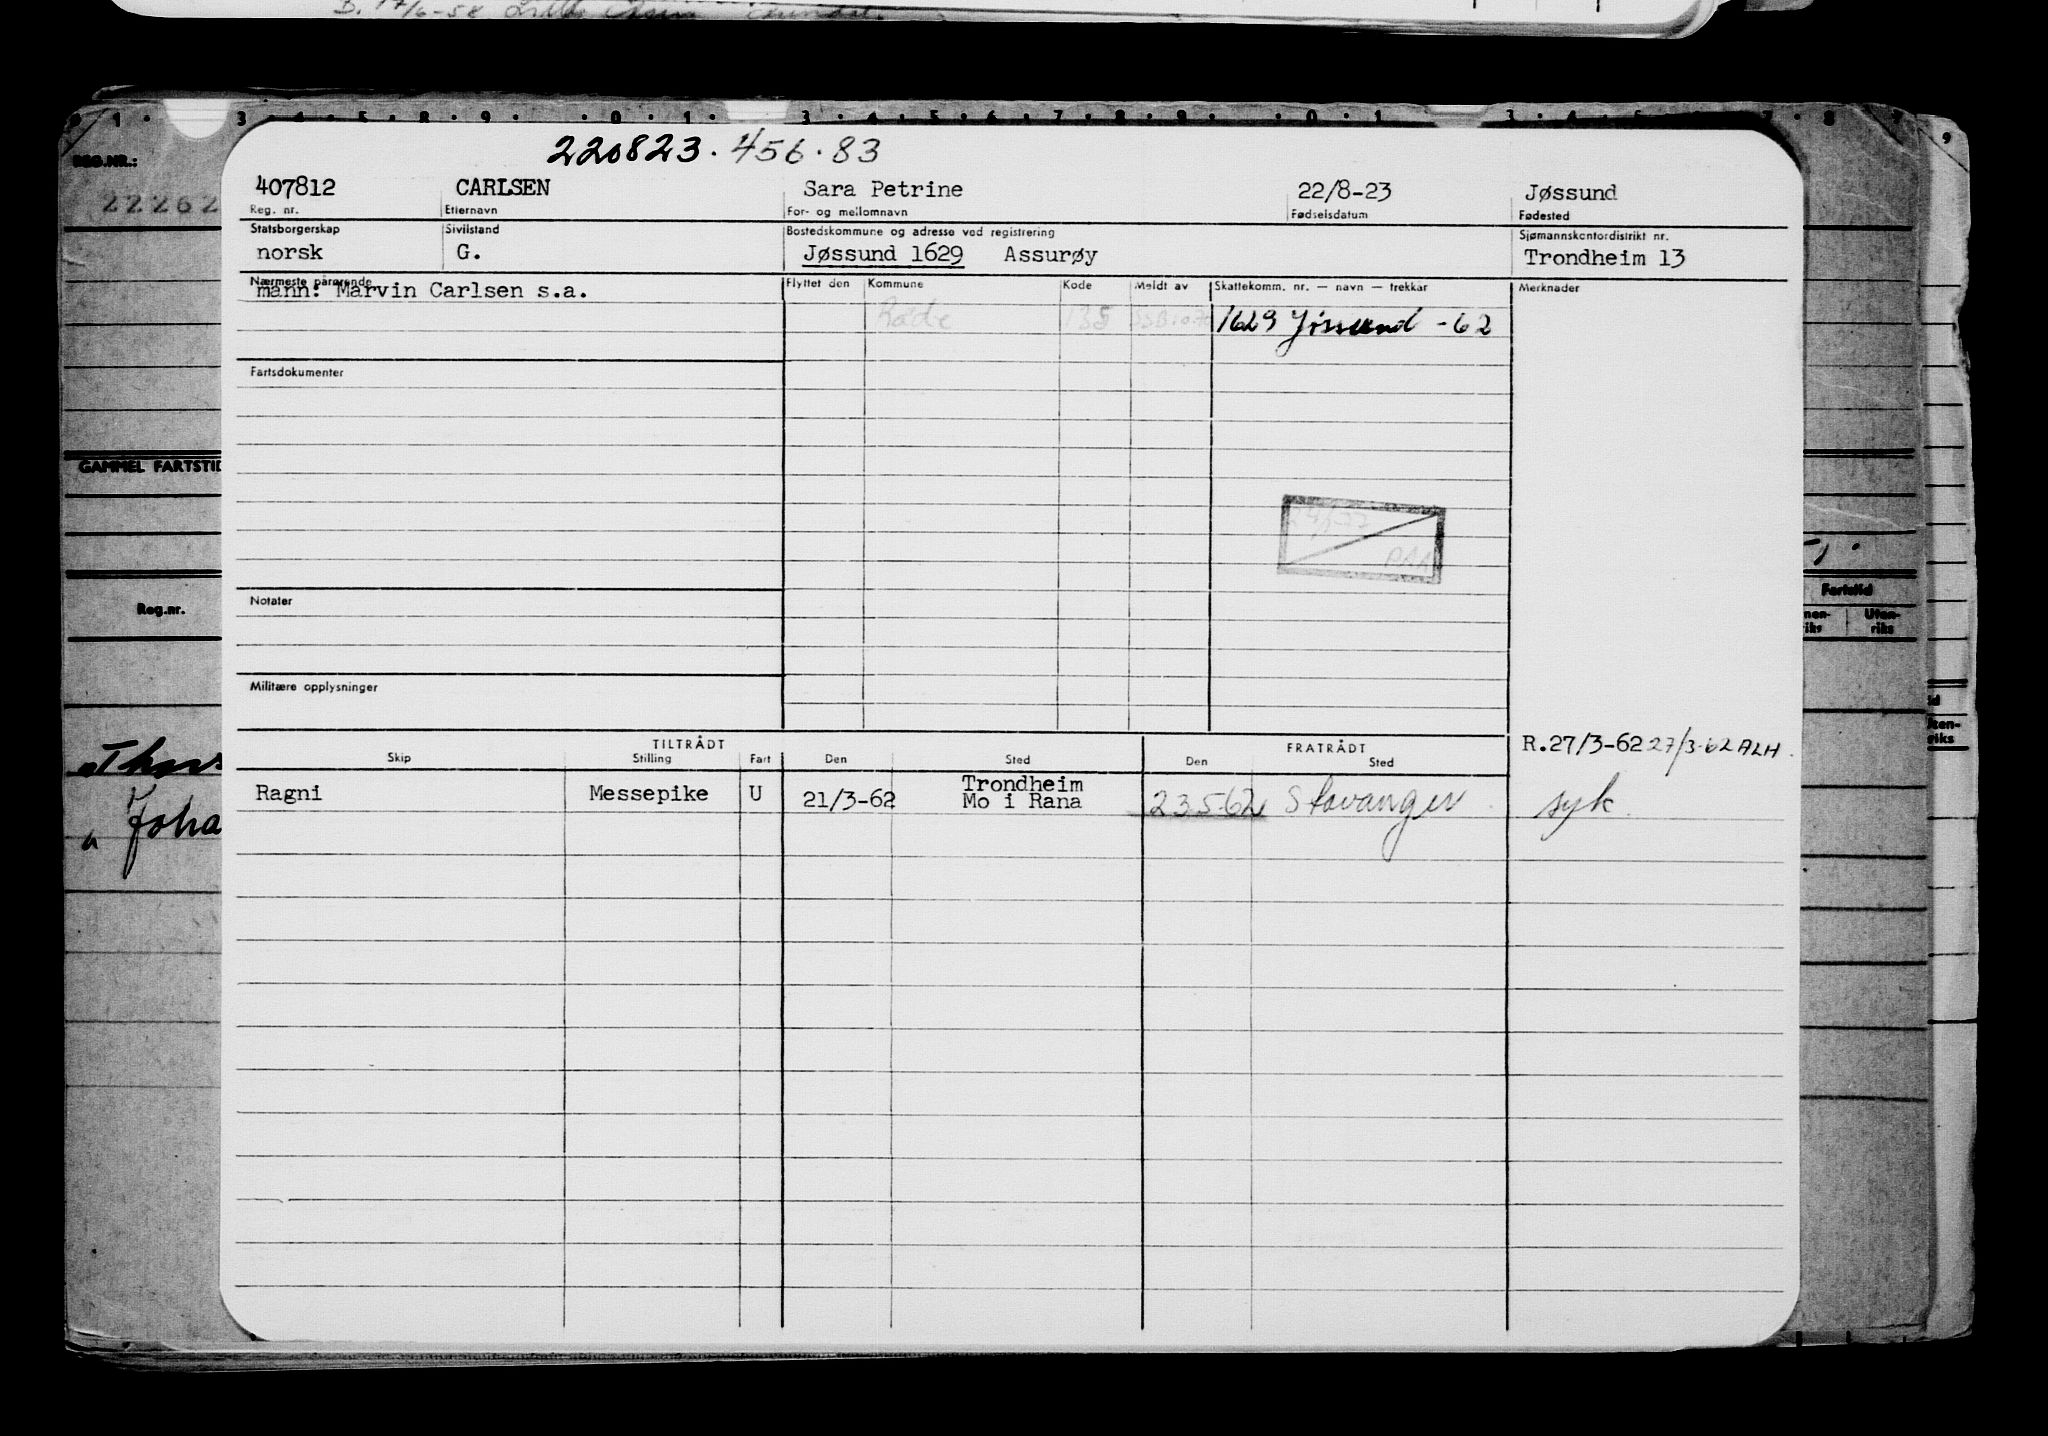 220823.456.83
407812 CARLSEN Sara Petrine 22/8-23 Jøssund
Reg. nr. Etternavn For- og mellomnavn Fødselsdatum Fødested
Statsborgerskap Sivilstand Bostedskommune og adresse ved registrering Sjømannskontordistrikt nr.
norsk G. Jøssund 1629 Assurøy Trondheim 13
Nærmeste pårørende Flyttet den Kommune Kode Meldt av Skattekomm. nr. — navn — trekkar Merknader
mann: Marvin Carlsen s.a.
Råde 135 1629 Jøssund -62
Fartsdokumenter
Notater
Militære opplysninger
TILTRÅDT FRATRÅDT R.27/3-62 27/3-62 ALH.
Skip Stilling Fart Den Sted Den Sted
Trondheim
Ragni Messepike U 21/3-62 Mo i Rana 23.5.62 Stavanger syk.
REG.NR.:
22262
GAMMEL FARTSTID
Reg.nr.
Fartstid